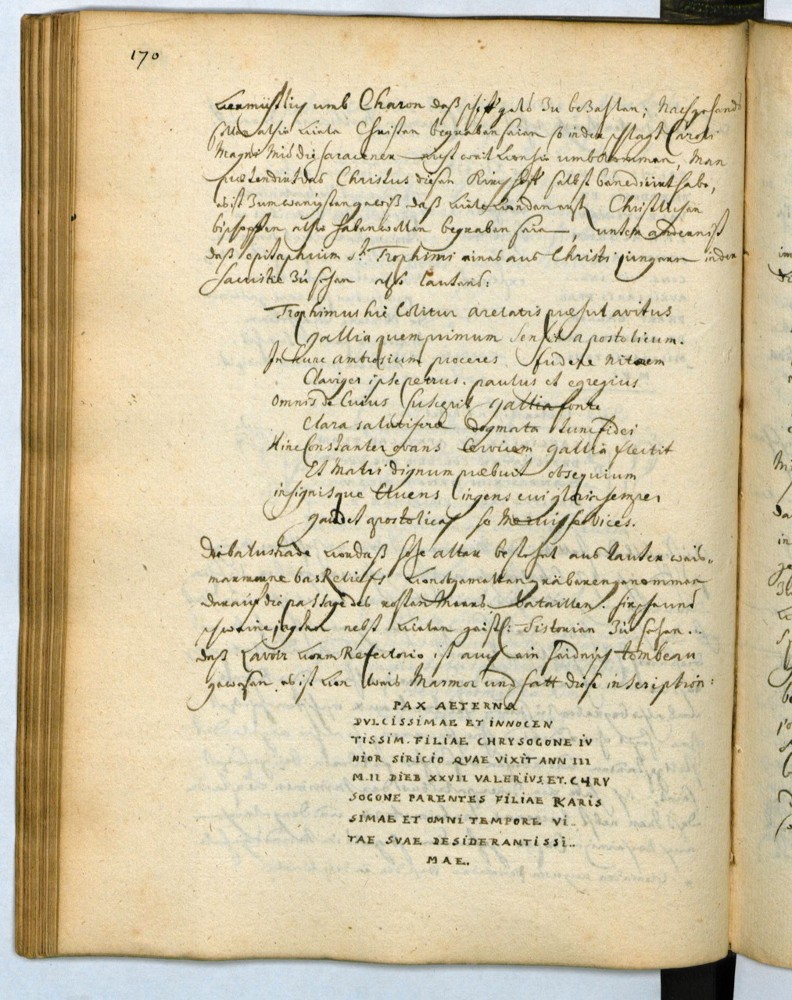 170
vermüßlich umb Charon daß schiff geld zu bezahlen; Nachgehends
sollen alhie viele Christen begraben seien so in der schlagt Caroli
Magni mid die saracenen nust weit von hie umbkommen, Man
prætendirt das Christus diesen Kirchhoff selbst benedicirt habe,
es ist zum wenigsten gewiß daß viele Christlichen
bischoffen alhie haben wollen begraben sein, unter andern ist
daß epitaphium st. Trophimi eines aus Christi jungern in der
sacristie zu sehen als lautend:
Trophimus hic Colitur arelatis præsul avitus
gallia quem primum sensit apostolicum.
In hunc ambrosium proceres fudere nitorem
Claviger ipse petrus. paulus et egregius
omnis de Cuius suscepit gallia fonte
Clara salutiferæ dogmata tunc fidei
Hinc Constanter ovans Cervicem gallia flectit
Et Matri dignum præbuit obsequium
insignisque cluens ingens cui gloria semper
gaudet apostolicas se Meruisse vices.
Die balustrade von daß hohe altar bestehet aus lauter weis-
marmorne bas Reliefs von gräberen genommen
darauf die passage des rohten Meers. batailles. hirsche und
schweine jagden nebst vielen geistl: Historien zu sehen..
daß Lavoir vom Refectorio ist auch ein heidnisch tombeau
gewesen. es ist von weis Marmor und hatt diese inscription:
PAX AETERNA
DVLCISSIMAE ET INNOCEN
TISSIM. FILIAE CHRYSOGONE IV
NIOR SIRICIO QVAE VIXIT ANN III
M.II DIEB XXVII VALERIVS.ET.CHRY
SOGONE PARENTES FILIAE KARIS
SIMAE ET OMNI TEMPORE VI-
TAE SVAE DESIDERANTISSI..
MAE..